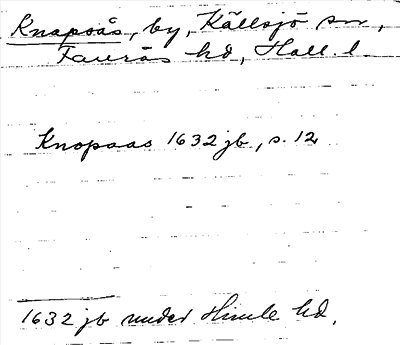 Knapaås, by, Källsjö sn,
Faurås hd, Hall. l.
Knopaas 1632 jb, s. 12
1632 jb under Himle hd.